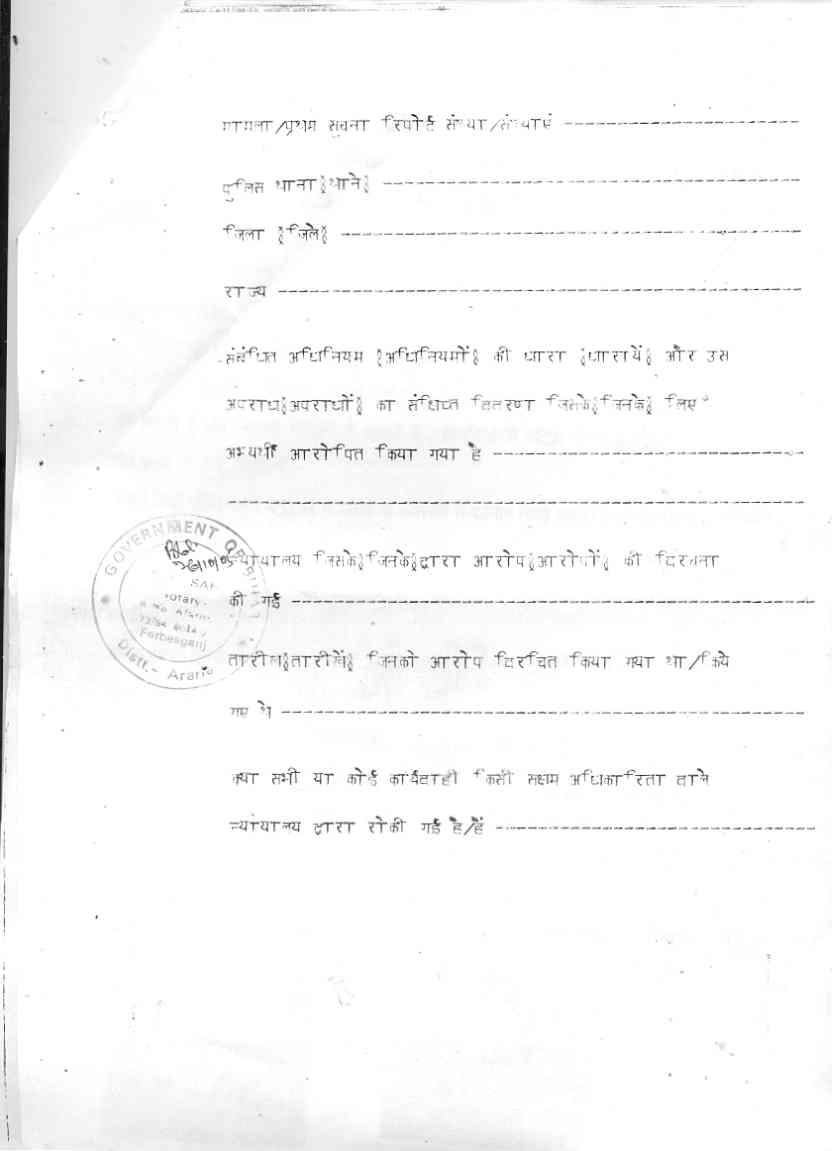 मामला/प्रथम सूचना रिपोर्ट संख्या/संख्याएं ---------------------------
पुलिस थाना (थाने) ------------------------------------------------
जिला (जिले) -----------------------------------------------------
राज्य ------------------------------------------------------------
संबंधित अधिनियम (अधिनियमों) की धारा (धारायें) और उस
अपराध(अपराधों) का संक्षिप्त विवरण जिसके(जिनके) लिए
अभ्यर्थी आरोपित किया गया है -----------------------------------
------------------------------------------------------------------
न्यायालय जिसके(जिनके)द्वारा आरोप(आरोपों) की विरचना
की गई ------------------------------------------------------------
तारीख(तारीखें) जिनको आरोप विरचित किया गया था/किये
गए थे ------------------------------------------------------------
क्या सभी या कोई कार्यवाही किसी सक्षम अधिकारिता वाले
न्यायालय द्वारा रोकी गई है/हैं -------------------------------------
GOVERNMENT OF
Notary
Forbesganj
Distt.- Araria